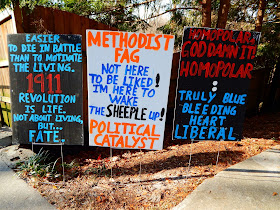 EASIER TO
DIE IN BATTLE
THAN TO MOTIVATE
THE LIVING.
1911
REVOLUTION
IS LIFE.
NOT ABOUT LIVING,
BUT...
FATE.
METHODIST
FAG
NOT HERE
TO BE LIVED!
I'M HERE TO
WAKE
THE SHEEPLE UP!
POLITICAL
CATALYST
HOMOPOLAR.
GOD DAMN IT
HOMOPOLAR
;
TRULY BLUE
BLEEDING
HEART
LIBERAL.